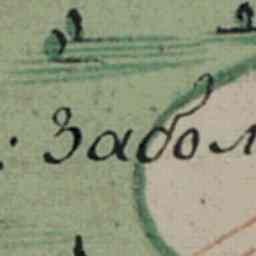 : Забол